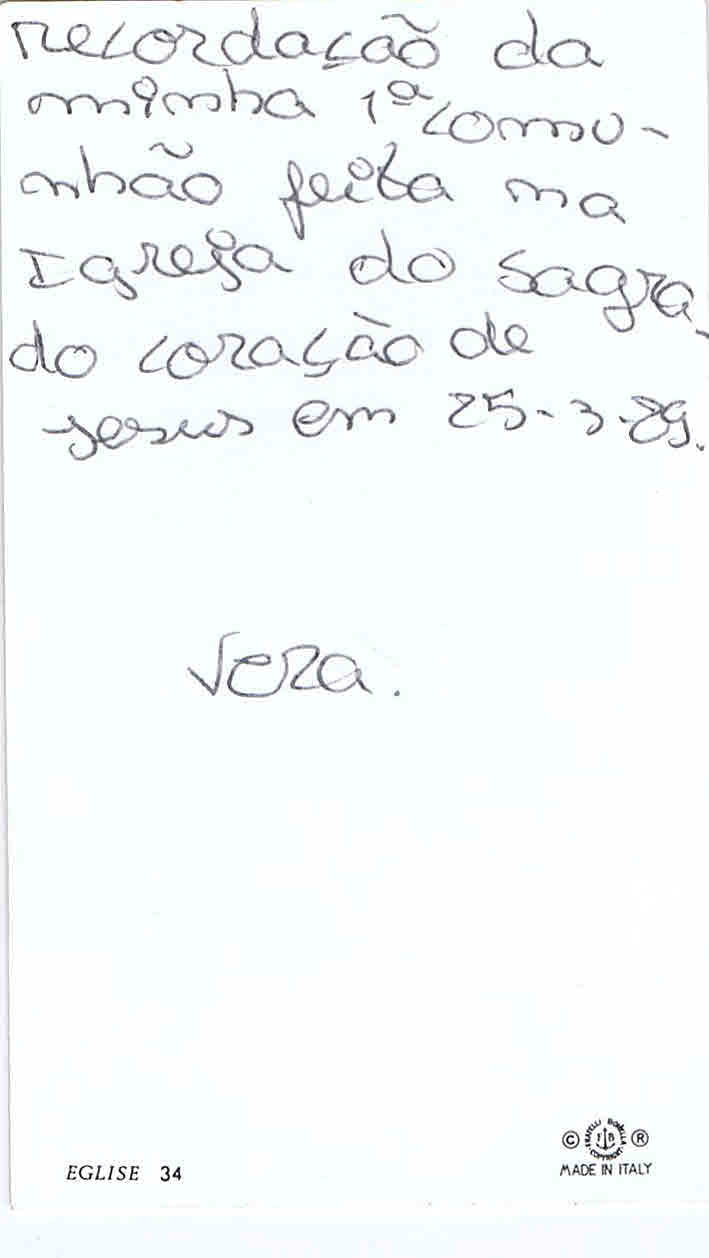 recordação da
minha 1ª comu-
nhão feita na
Igreja do Sagra-
do coração de
Jesus em 25-3-89.
Vera.
EGLISE 34
© FRATELLI BONELLA COPYRIGHT F B ®
MADE IN ITALY